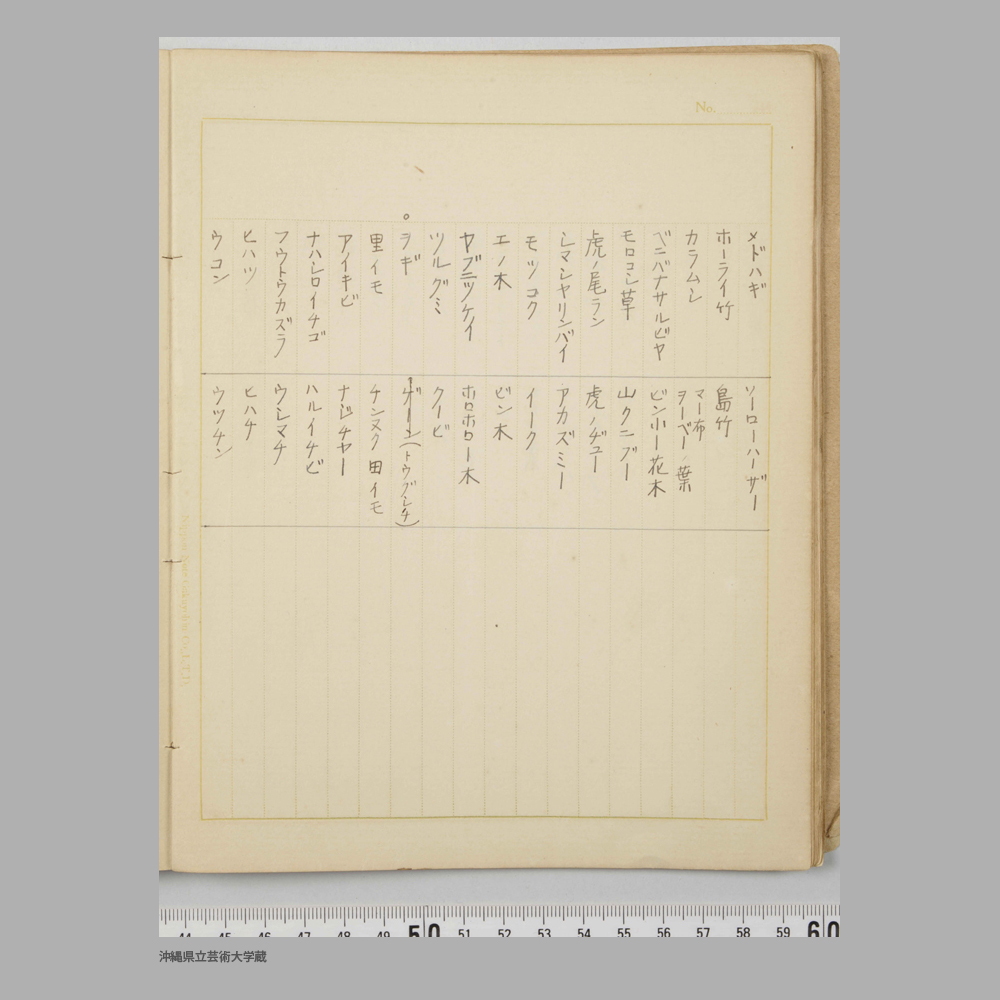 No.
メドハギ
ソーローハーザー
ホーライ竹
島竹
カラムシ
マー布
ヲーベー葉
ベニバナサルビヤ
ビンホー花木
モロコシ草
山クニブー
虎ノ尾ラン
虎ノヂュー
シマシヤリンバイ
アカズミー
モツコク
イーク
エノ木
ビン木
ヤブニツケイ
ホロホロー木
ツルグミ
クービ
ヲギ
(トウグシチ)
里イモ
チンヌク田イモ
アイキビ
ナジチヤー
ナハシロイチゴ
ハルイチビ
フウトウカズラ
ウシマチ
ヒハツ
ヒハチ
ウコン
ウツチン
44 45 46 47 48 49 50 51 52 53 54 55 56 57 58 59 60
沖縄県立芸術大学蔵